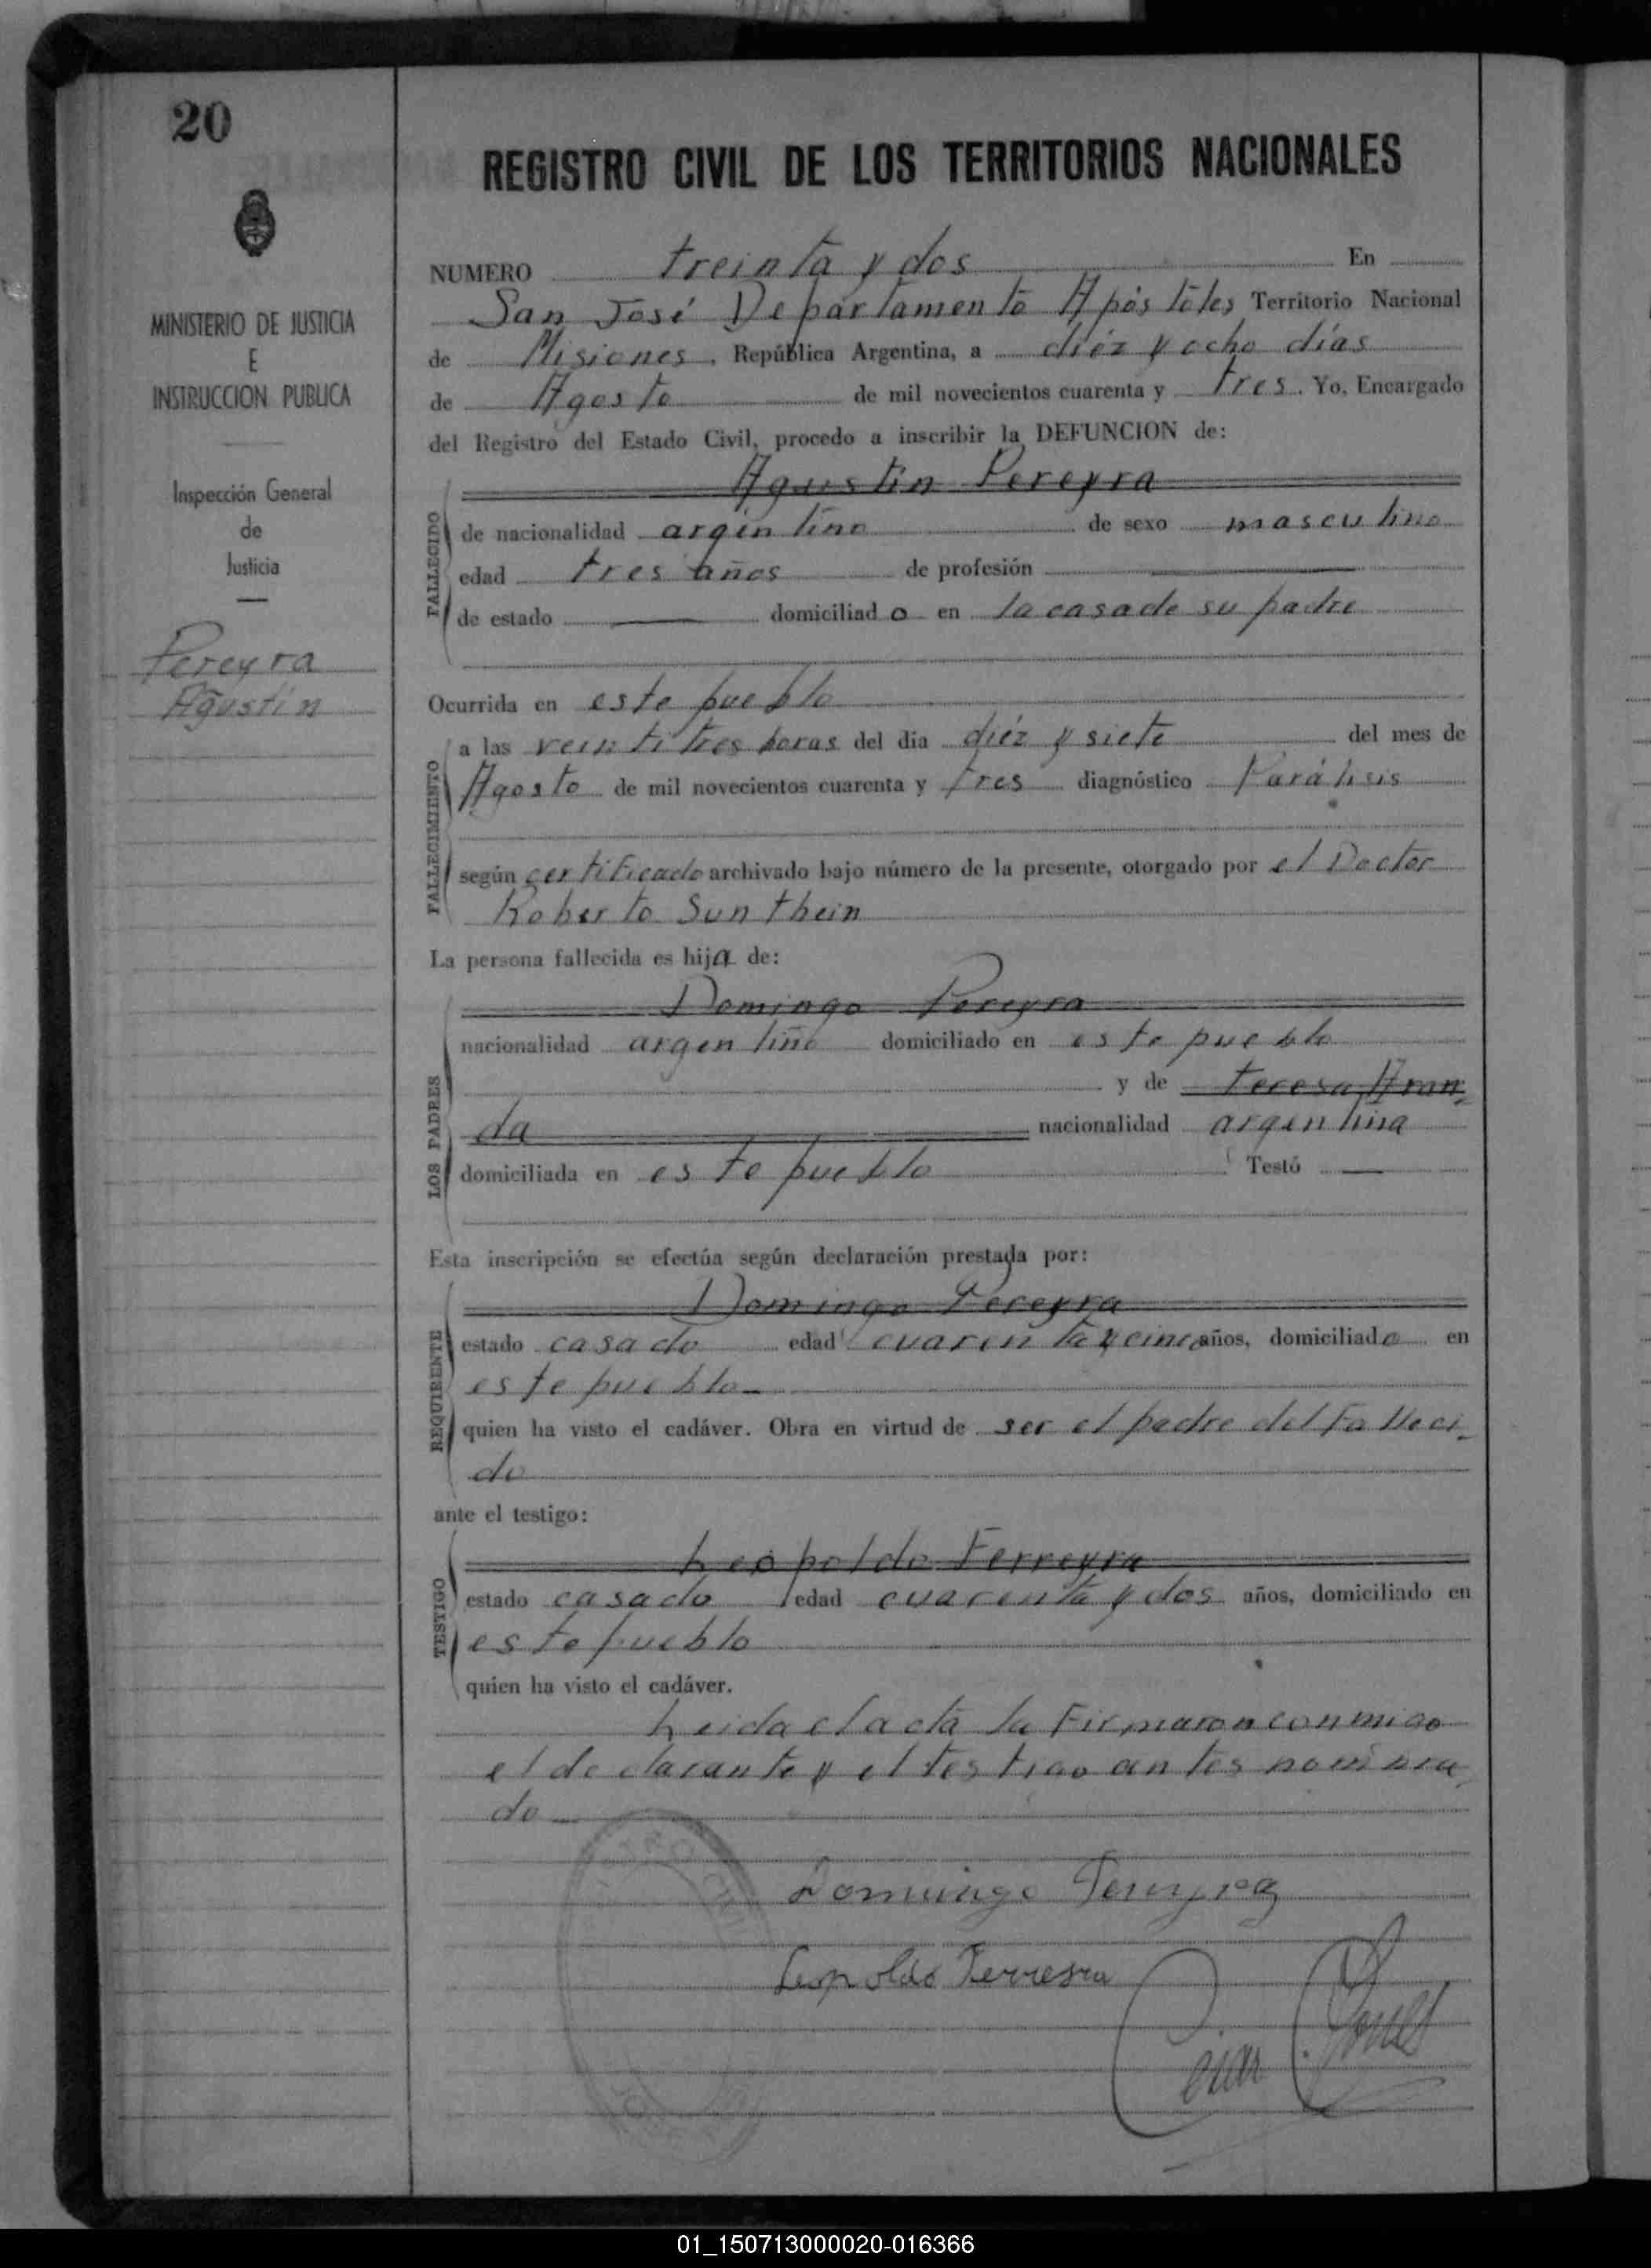 20
MINISTERIO DE JUSTICIA
E
INSTRUCCION PUBLICA
Inspección General
de
Justicia
Pereyra
Agustín
REGISTRO CIVIL DE LOS TERRITORIOS NACIONALES
NUMERO treinta y dos En
San José Departamento Apóstoles Territorio Nacional
de Misiones, República Argentina, a diéz y ocho días
de Agosto de mil novecientos cuarenta y tres. Yo, Encargado
del Registro del Estado Civil, procedo a inscribir la DEFUNCION de:
Agustin Pereyra
FALLECIDO
de nacionalidad argentino de sexo masculino
edad tres años de profesión
de estado domiciliado en la casa de su padre
Ocurrida en este pueblo
FALLECIMIENTO
a las veintitres horas del día diéz y siete del mes de
Agosto de mil novecientos cuarenta y tres diagnóstico Parálisis
según certificado archivado bajo número de la presente, otorgado por el Doctor
Roberto Sunthein
La persona fallecida es hija de:
LOS PADRES
Domingo Pereyra
nacionalidad argentino domiciliado en este pueblo
y de Teresa Aran-
da nacionalidad argentina
domiciliada en este pueblo Testó
Esta inscripción se efectúa según declaración prestada por:
REQUIRENTE
Domingo Pereyra
estado casado edad cuarenta y cinco años, domiciliado en
este pueblo
quien ha visto el cadáver. Obra en virtud de ser el padre del falleci-
do
ante el testigo:
TESTIGO
Leopoldo Ferreyra
estado casado edad cuarenta y dos años, domiciliado en
este pueblo
quien ha visto el cadáver.
Leida el acta la firmaron conmigo
el declarante y el testigo antes nombra-
do
Domingo Pereyra
Leopoldo Ferreyra
01_150713000020-016366